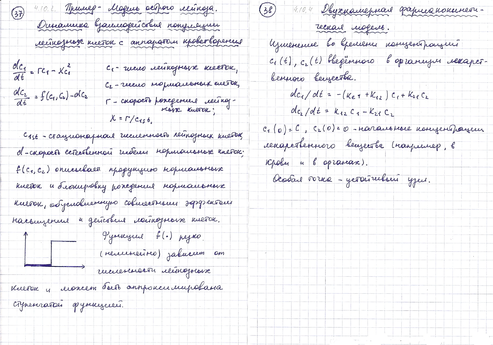 37
Пример - Модель острого лейкоза.
Динамика взаимодействия популяции
лейкозных клеток с аппаратом кроветворения
dC₁/dt = ГC₁ - χC₁²
C₁ - число лейкозных клеток,
C₂ - число нормальных клеток,
dC₂/dt = f(C₁, C₂) - dC₂
Г - скорость рождения лейкоз-
ных клеток;
χ = Г/C₁st,
C₁st - стационарная численность лейкозных клеток
d - скорость естественной гибели нормальных клеток;
f(C₁, C₂) описывает продукцию нормальных
клеток и блокировку рождения нормальных
клеток, обусловленную совместным эффектом
насыщения и действия лейкозных клеток.
Функция f(·) резко
(нелинейно) зависит от
численности лейкозных
клеток и может быть аппроксимирована
ступенчатой функцией.
38
Двухкамерная фармакокинети-
ческая модель.
Изменение во времени концентраций
C₁(t), C₂(t) введённого в организм лекарст-
венного вещества.
dC₁/dt = -(K₂₁ + K₁₂)C₁ + K₂₁C₂
dC₂/dt = K₁₂C₁ - K₂₁C₂
C₁(0) = C, C₂(0) = 0 - начальные концентрации
лекарственного вещества (например, в
крови и в органах).
Особая точка - устойчивый узел.